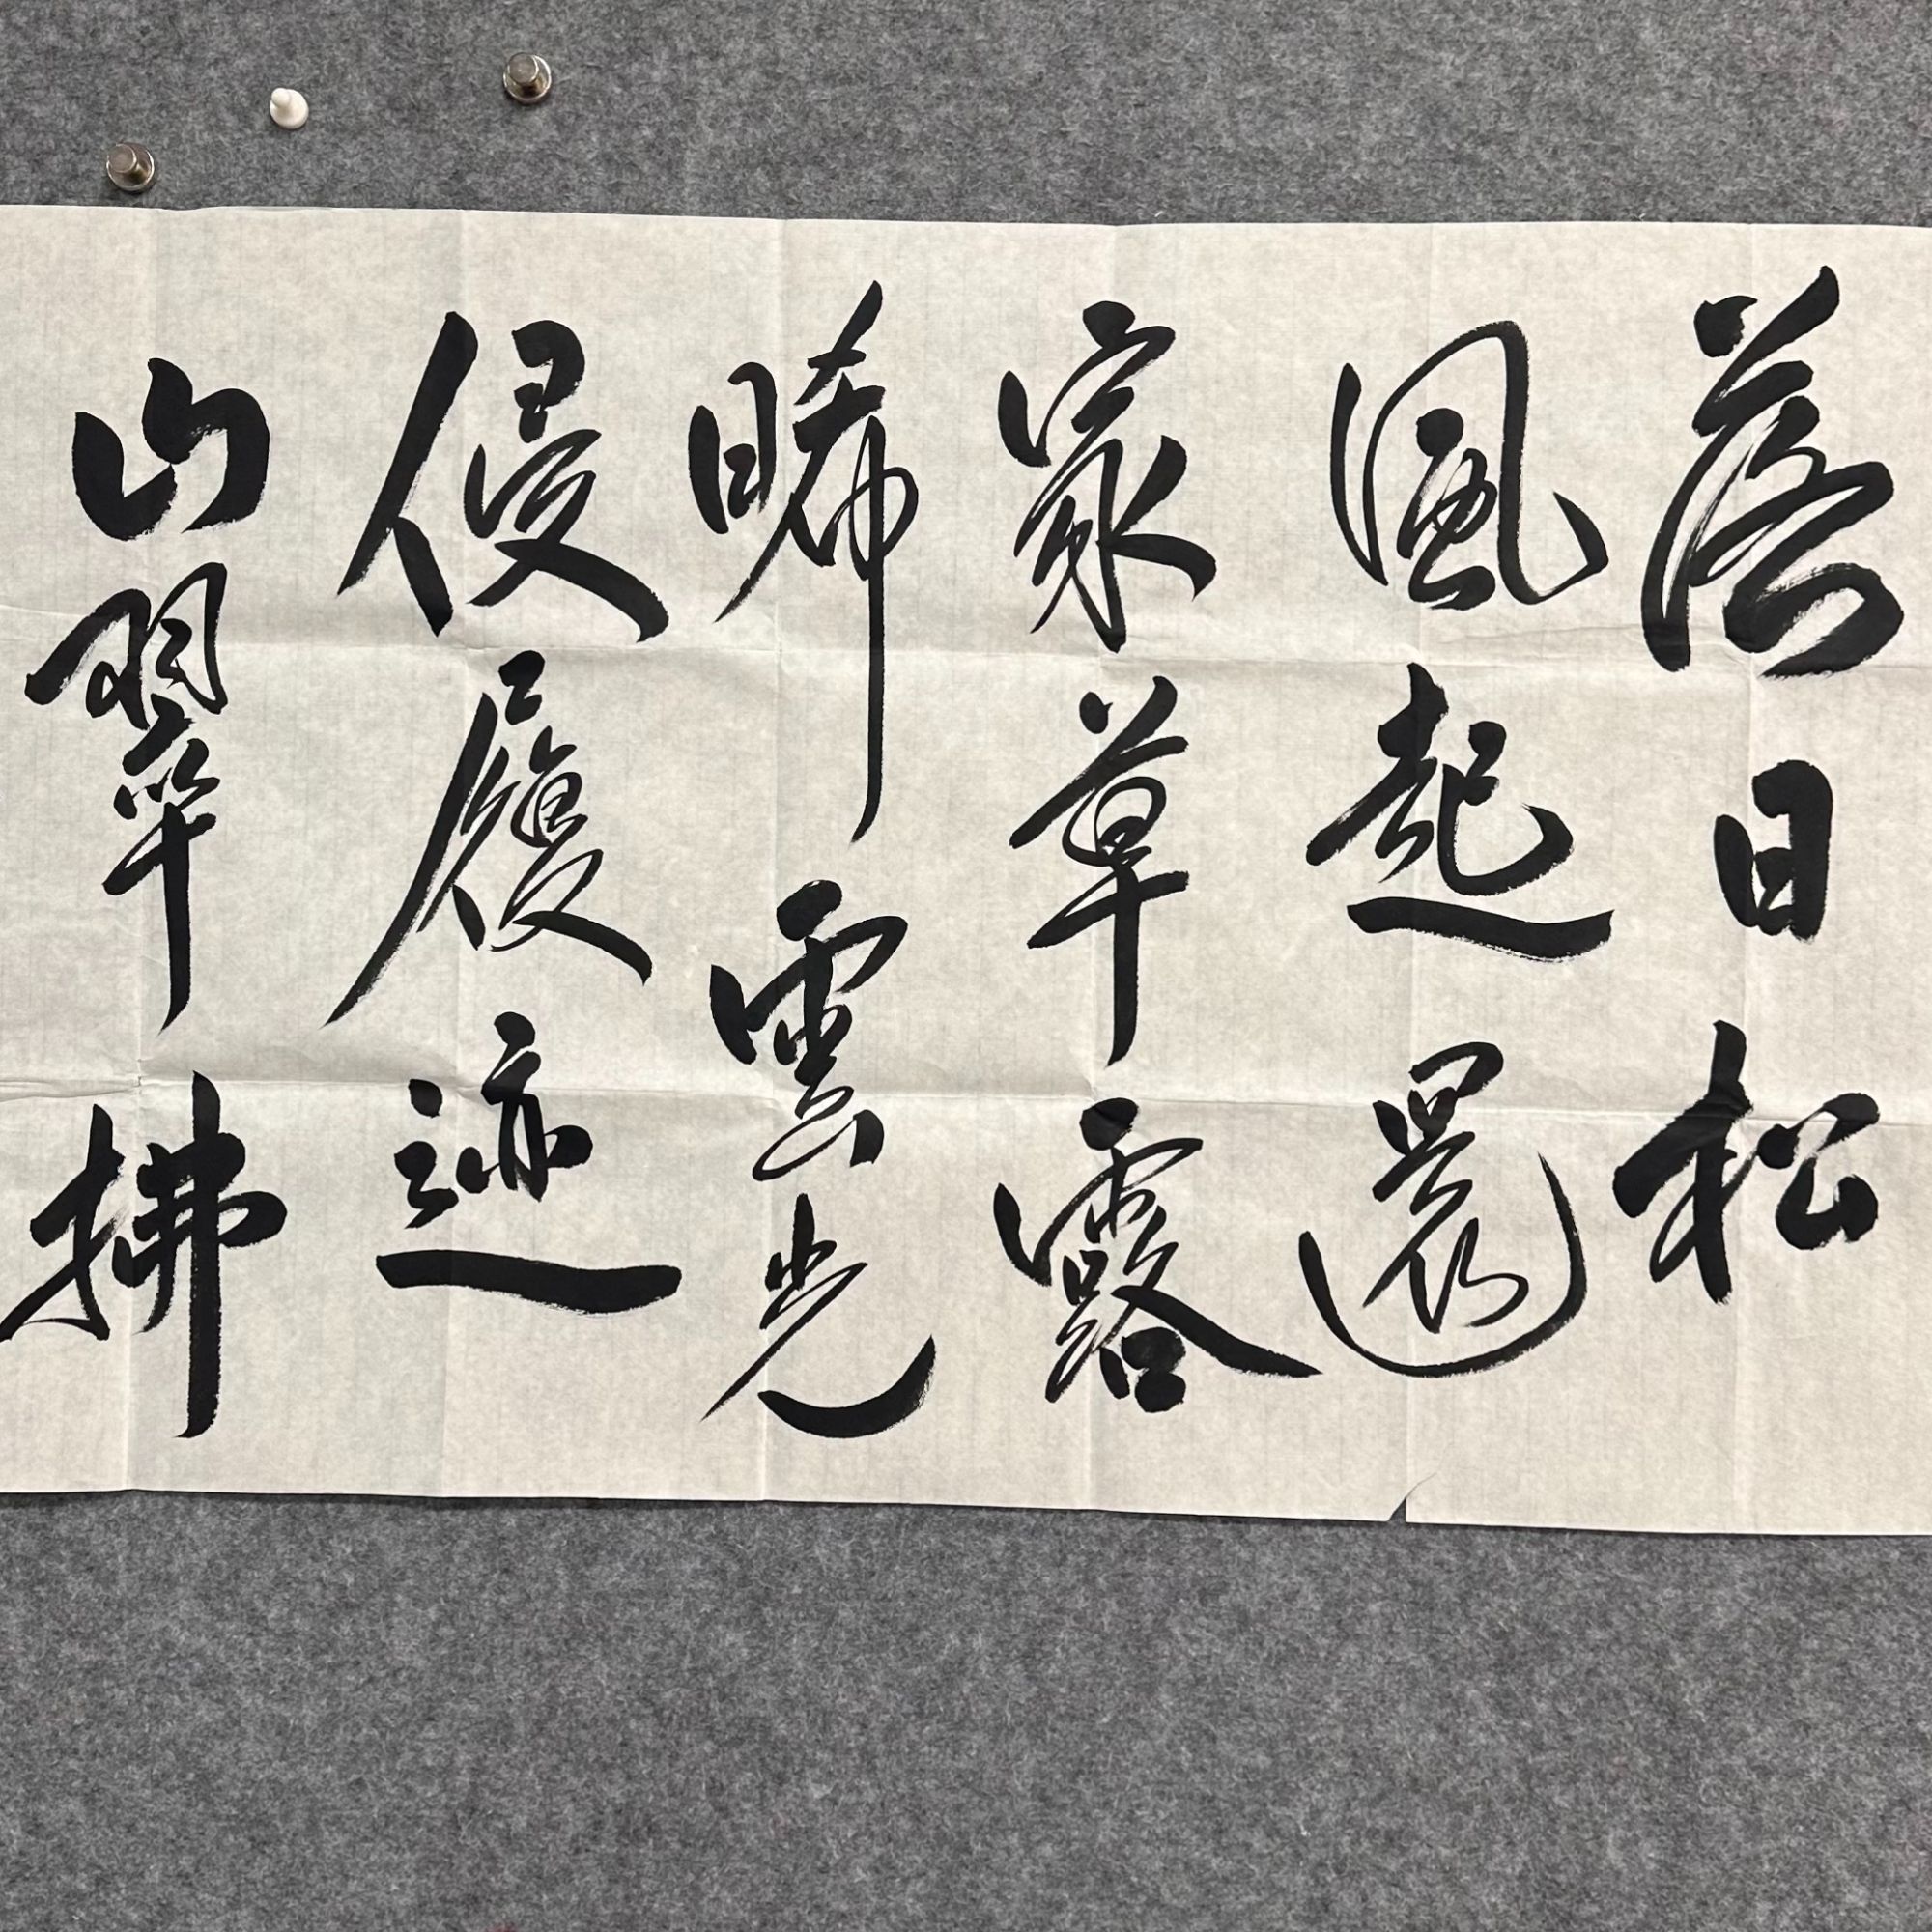 落日松
風起還
家草露
晞雲光
侵履迹
山翠拂